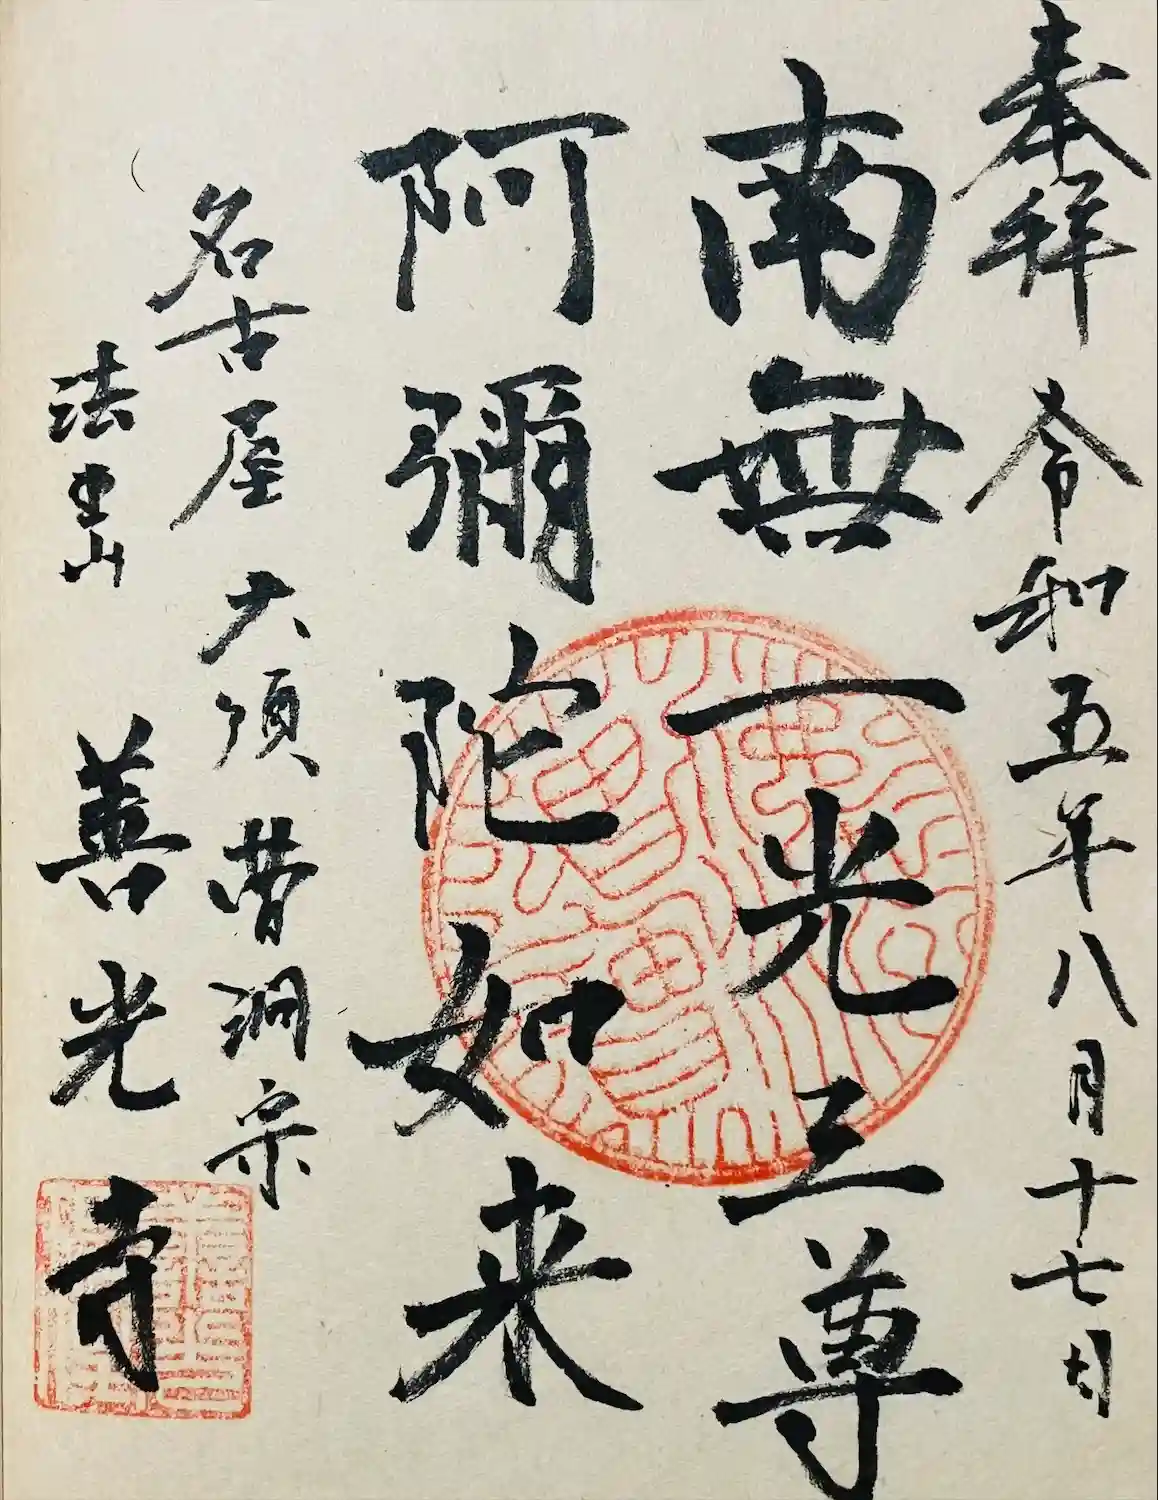 奉拝 令和五年八月十七日
南無一光三尊
阿彌陀如来
名古屋 大須 曹洞宗
法 山 善光寺